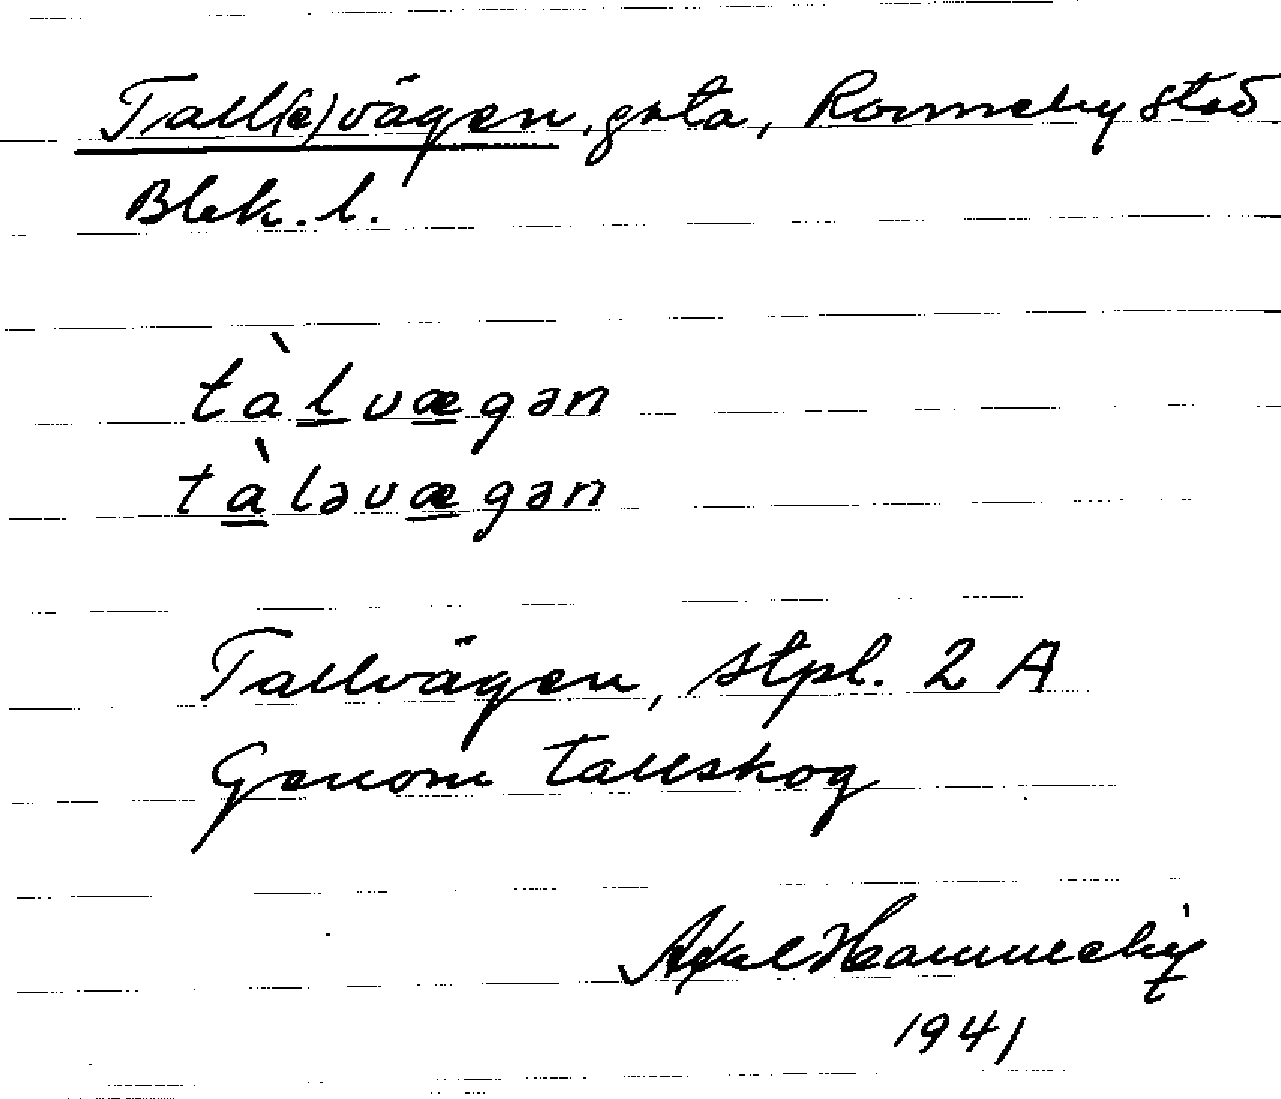 Tall(e)vägen, gata, Ronneby stad
Blek. l.
tàlvægən
tàləvægən
Tallvägen, stpl. 2 A
Genom tallskog
Axel
1941